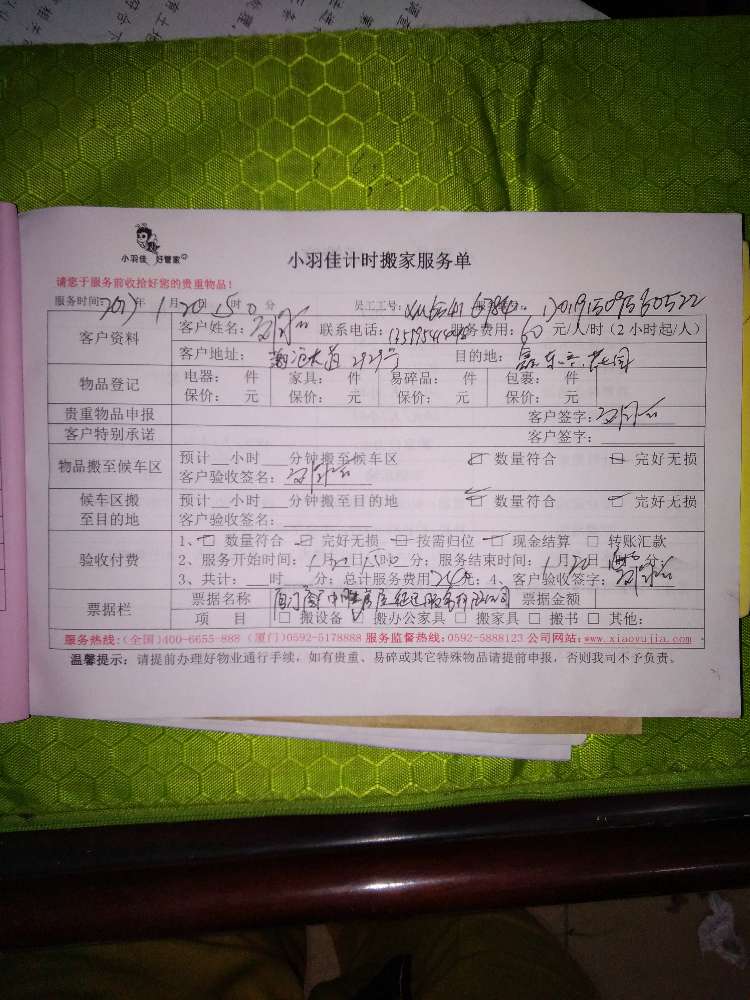 小羽佳 好管家
小羽佳计时搬家服务单
请您于服务前收拾好您的贵重物品！
服务时间： 年 1月20日 15时0分 员工工号：
客户资料 客户姓名： 联系电话： 服务费用：60元/人/时（2小时起/人）
客户地址： 2929号 目的地：
物品登记 电器： 件 家具： 件 易碎品： 件 包裹： 件
保价： 元 保价： 元 保价： 元 保价： 元
贵重物品申报 客户签字：
客户特别承诺 客户签字：
物品搬至候车区 预计__小时___分钟搬至候车区 □ 数量符合 □ 完好无损
客户验收签名：
候车区搬至目的地 预计__小时___分钟搬至目的地 数量符合 完好无损
客户验收签名：
验收付费 1、□ 数量符合 □ 完好无损 □ 按需归位 □ 现金结算 □ 转账汇款
2、服务开始时间：1月20日15时0分；服务结束时间：1月20日 分；
3、共计：___时___分；总计服务费用240元；4、客户验收签字：
票据栏 票据名称 票据金额
项 目 □ 搬设备 □ 搬办公家具 □ 搬家具 □ 搬书 □ 其他：
服务热线：(全国)400-6655-888 (厦门)0592-5178888 服务监督热线：0592-5888123 公司网站：www.xiaoyujia.com
温馨提示：请提前办理好物业通行手续，如有贵重、易碎或其它特殊物品请提前申报，否则我司不予负责。